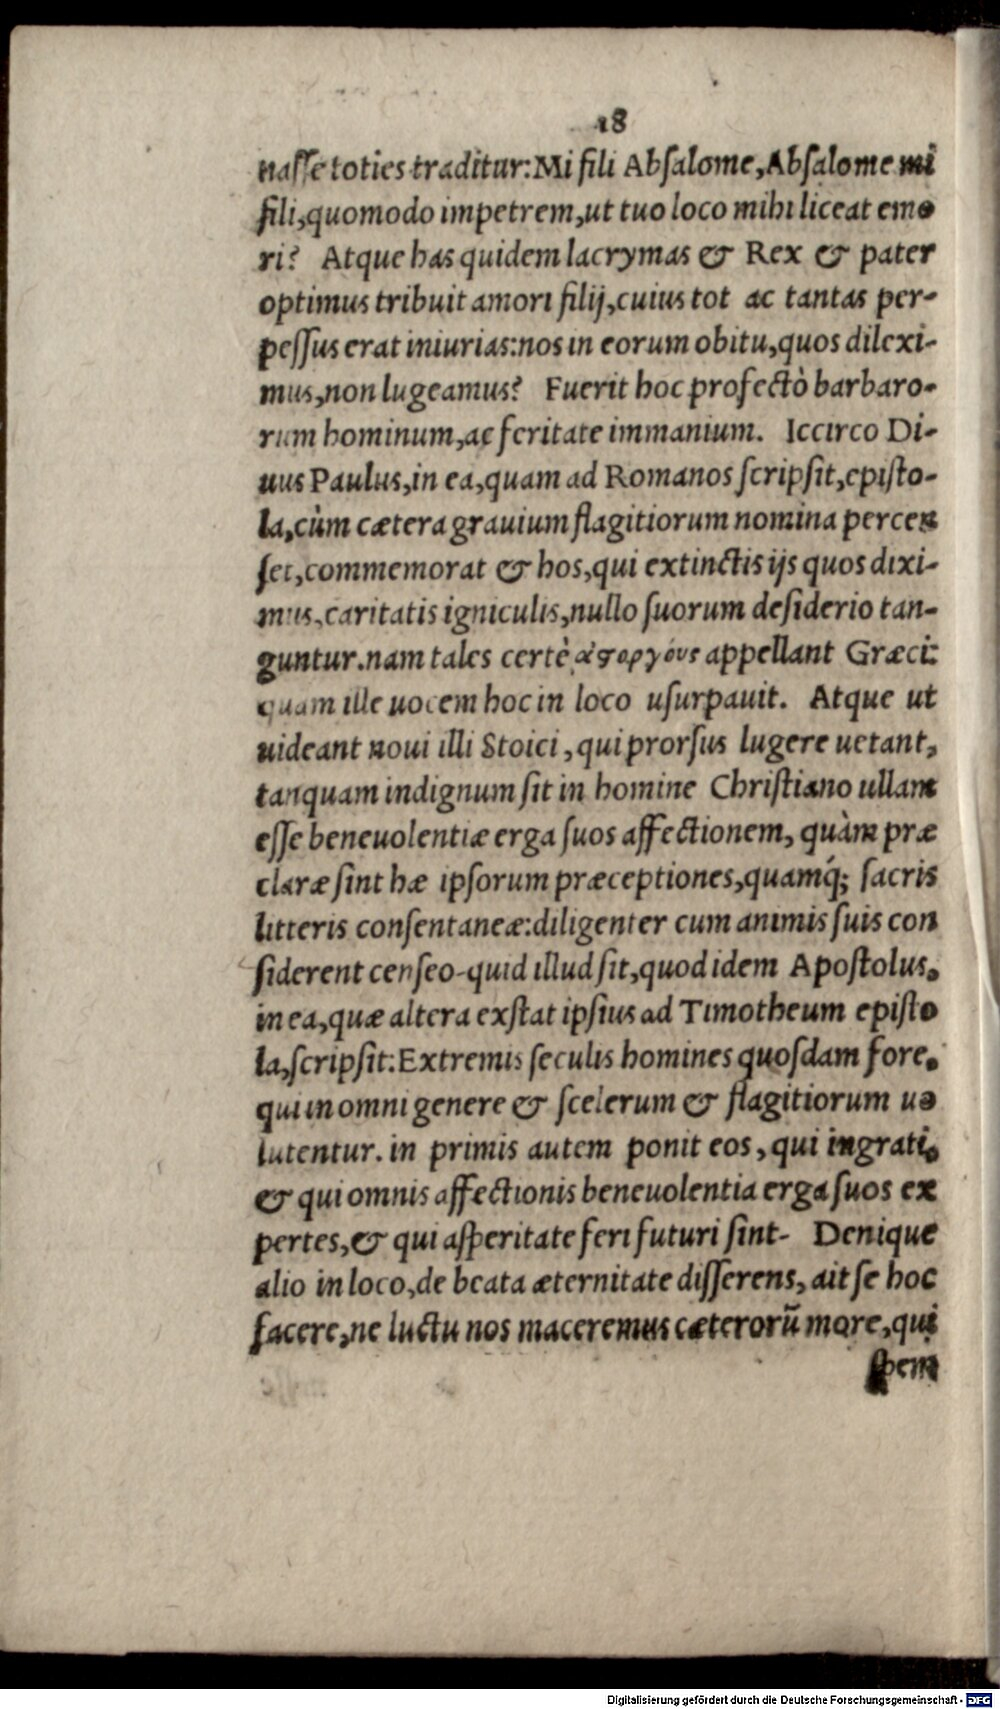 18
nasse toties traditur: Mi fili Absalome, Absalome mi
fili, quomodo impetrem, ut tuo loco mihi liceat emo
ri? Atque has quidem lacrymas & Rex & pater
optimus tribuit amori filij, cuius tot ac tantas per-
pessus erat iniurias: nos in eorum obitu, quos dilexi-
mus, non lugeamus? Fuerit hoc profectò barbaro-
rum hominum, ac feritate immanium. Iccirco Di-
uus Paulus, in ea, quam ad Romanos scripsit, episto-
la, cùm cætera grauium flagitiorum nomina percen
set, commemorat & hos, qui extinctis ijs quos dixi-
mus, caritatis igniculis, nullo suorum desiderio tan-
guntur. nam tales certè ἀϛοργόυς appellant Græci:
quam ille uocem hoc in loco usurpauit. Atque ut
uideant noui illi Stoici, qui prorsus lugere uetant,
tanquam indignum sit in homine Christiano ullam
esse beneuolentiæ erga suos affectionem, quàm præ
claræ sint hæ ipsorum præceptiones, quamq́; sacris
litteris consentaneæ: diligenter cum animis suis con
siderent censeo- quid illud sit, quod idem Apostolus,
in ea, quæ altera exstat ipsius ad Timotheum episto
la, scripsit: Extremis seculis homines quosdam fore,
qui in omni genere & scelerum & flagitiorum uo
lutentur. in primis autem ponit eos, qui ingrati,
& qui omnis affectionis beneuolentia erga suos ex
pertes, & qui asperitate feri futuri sint- Denique
alio in loco, de beata æternitate disserens, ait se hoc
facere, ne luctu nos maceremus cæterorũ more, qui
spem
Digitalisierung gefördert durch die Deutsche Forschungsgemeinschaft - DFG